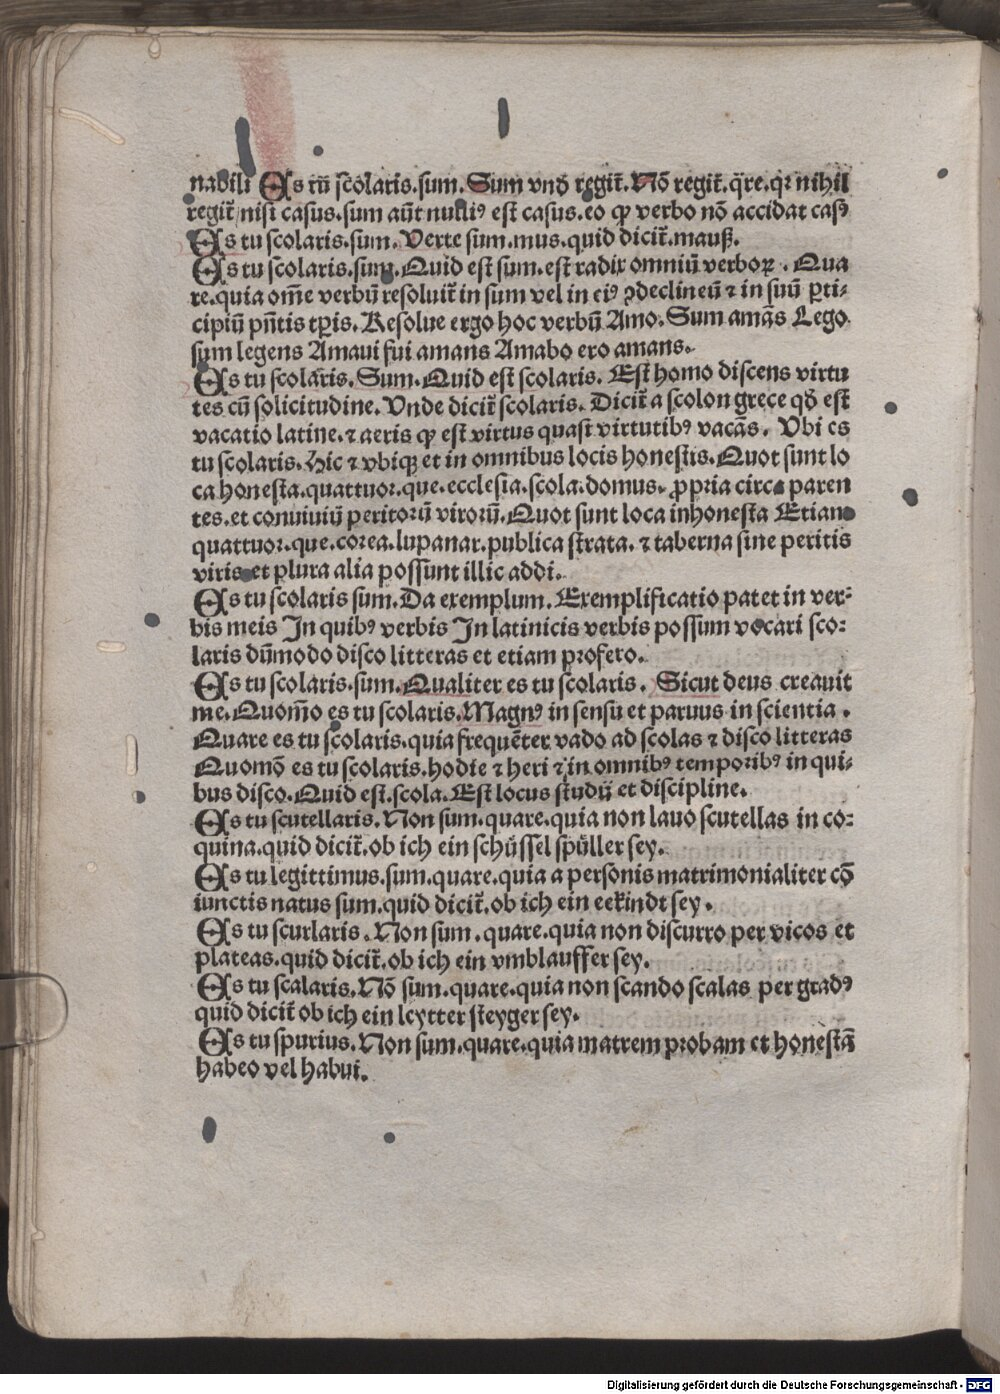 nabili Es tu scolaris.sum. Sum vnď regit̃. Nõ regit̃. q̃re. qꝛ nihil
regit̃ nisi casus.sum aũt nulliꝰ est casus.eo ꝙ verbo nõ accidat casꝰ
Es tu scolaris.sum. Verte sum.mus.quid dicit̃.mauß.
Es tu scolaris.sum. Quid est sum.est radix omniũ verboꝝ. Qua
re.quia om̃e verbũ resoluit̃ in sum vel in eiꝰ ꝯdeclineũ ⁊ in suũ ꝑti⸗
cipiũ pñtis tꝑis. Resolue ergo hoc verbũ Amo. Sum amãs Lego.
sum legens Amaui fui amans Amabo ero amans.
Es tu scolaris. Sum. Quid est scolaris. Est homo discens virtu
tes cũ solicitudine. Vnde dicit̃ scolaris. Dicit̃ a scolon grece qď est
vacatio latine. ⁊ aeris ꝙ est virtus quasi virtutibꝰ vacãs. Vbi es
tu scolaris. Hic ⁊ vbiqꝫ et in omnibus locis honestis. Quot sunt lo
ca honesta.quattuor.que.ecclesia.scola.domus. ꝓpria circa paren
tes.et conuiuiũ peritorũ virorũ. Quot sunt loca inhonesta Etiam
quattuor.que.corea.lupanar.publica strata. ⁊ taberna sine peritis
viris et plura alia possunt illic addi.
Es tu scolaris sum. Da exemplum. Exemplificatio patet in ver⸗
bis meis In quibꝰ verbis In latinicis verbis possum vocari sco⸗
laris dũmodo disco litteras et etiam profero.
Es tu scolaris.sum. Qualiter es tu scolaris. Sicut deus creauit
me. Quom̃o es tu scolaris. Magnꝰ in sensu et paruus in scientia.
Quare es tu scolaris.quia frequẽter vado ad scolas ⁊ disco litteras
Quomõ es tu scolaris.hodie ⁊ heri ⁊ in omnibꝰ temporibꝰ in qui⸗
bus disco. Quid est.scola. Est locus studii et discipline.
Es tu scutellaris. Non sum.quare.quia non lauo scutellas in co⸗
quina.quid dicit̃.ob ich ein schüssel spüller sey.
Es tu legittimus.sum.quare.quia a personis matrimonialiter cõ
iunctis natus sum.quid dicit̃.ob ich ein eekindt sey.
Es tu scurlaris. Non sum. quare.quia non discurro per vicos et
plateas.quid dicit̃.ob ich ein vmblauffer sey.
Es tu scalaris. Nõ sum.quare.quia non scando scalas per gradꝰ
quid dicit̃ ob ich ein leytter steyger sey.
Es tu spurius. Non sum.quare.quia matrem probam et honestã
habeo vel habui.
Digitalisierung gefördert durch die Deutsche Forschungsgemeinschaft - DFG